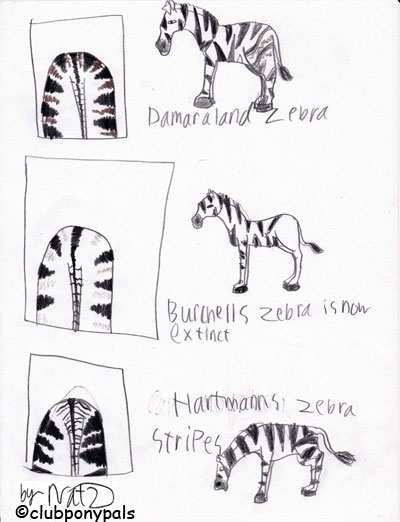 Damaraland Zebra
Burchells zebra is now
extinct
Hartmanns zebra
stripes
by Nat D
©clubponypals